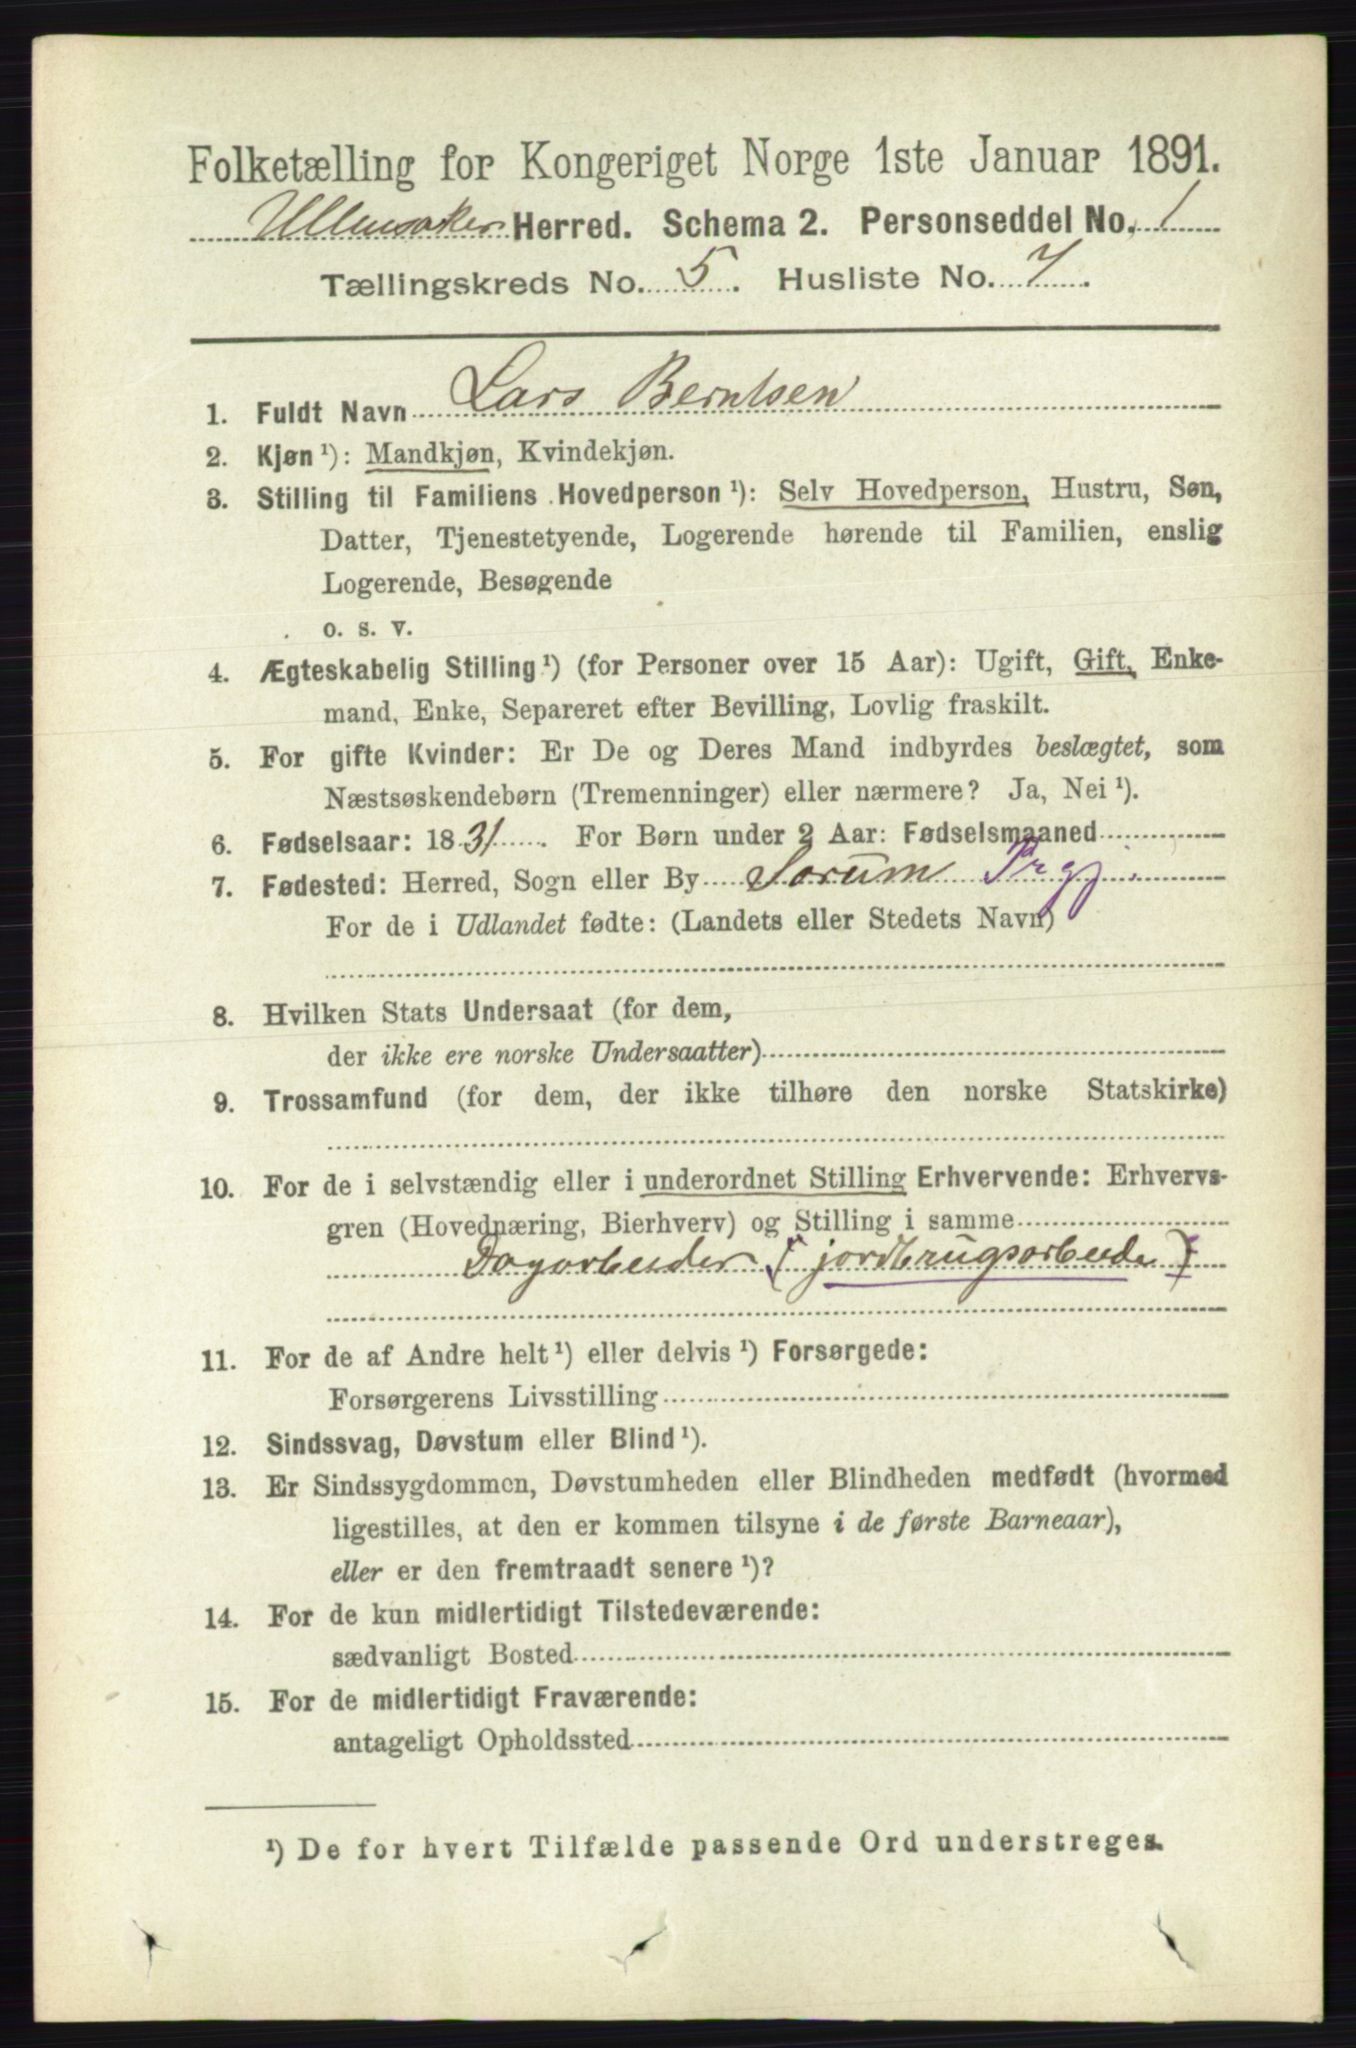 Folketælling for Kongeriget Norge 1ste Januar 1891.
Ullensaker Herred. Schema 2. Personseddel No. 1
Tællingskreds No. 5. Husliste No. 7.
1. Fuldt Navn Lars Berntsen
2. Kjøn ¹): Mandkjøn, Kvindekjøn.
3. Stilling til Familiens Hovedperson ¹): Selv Hovedperson, Hustru, Søn,
Datter, Tjenestetyende, Logerende hørende til Familien, enslig
Logerende, Besøgende
o. s. v.
4. Ægteskabelig Stilling ¹) (for Personer over 15 Aar): Ugift, Gift, Enke-
mand, Enke, Separeret efter Bevilling, Lovlig fraskilt.
5. For gifte Kvinder: Er De og Deres Mand indbyrdes beslægtet, som
Næstsøskendebørn (Tremenninger) eller nærmere? Ja, Nei ¹).
6. Fødselsaar: 1831. For Børn under 2 Aar: Fødselsmaaned
7. Fødested: Herred, Sogn eller By Sørum Prgj.
For de i Udlandet fødte: (Landets eller Stedets Navn)
8. Hvilken Stats Undersaat (for dem,
der ikke ere norske Undersaatter)
9. Trossamfund (for dem, der ikke tilhøre den norske Statskirke)
10. For de i selvstændig eller i underordnet Stilling Erhvervende: Erhvervs-
gren (Hovednæring, Bierhverv) og Stilling i samme
Dagarbeider (jordbrugsarbeide)
11. For de af Andre helt ¹) eller delvis ¹) Forsørgede:
Forsørgerens Livsstilling
12. Sindssvag, Døvstum eller Blind ¹).
13. Er Sindssygdommen, Døvstumheden eller Blindheden medfødt (hvormed
ligestilles, at den er kommen tilsyne i de første Barneaar),
eller er den fremtraadt senere ¹)?
14. For de kun midlertidigt Tilstedeværende:
sædvanligt Bosted
15. For de midlertidigt Fraværende:
antageligt Opholdssted
¹) De for hvert Tilfælde passende Ord understreges.